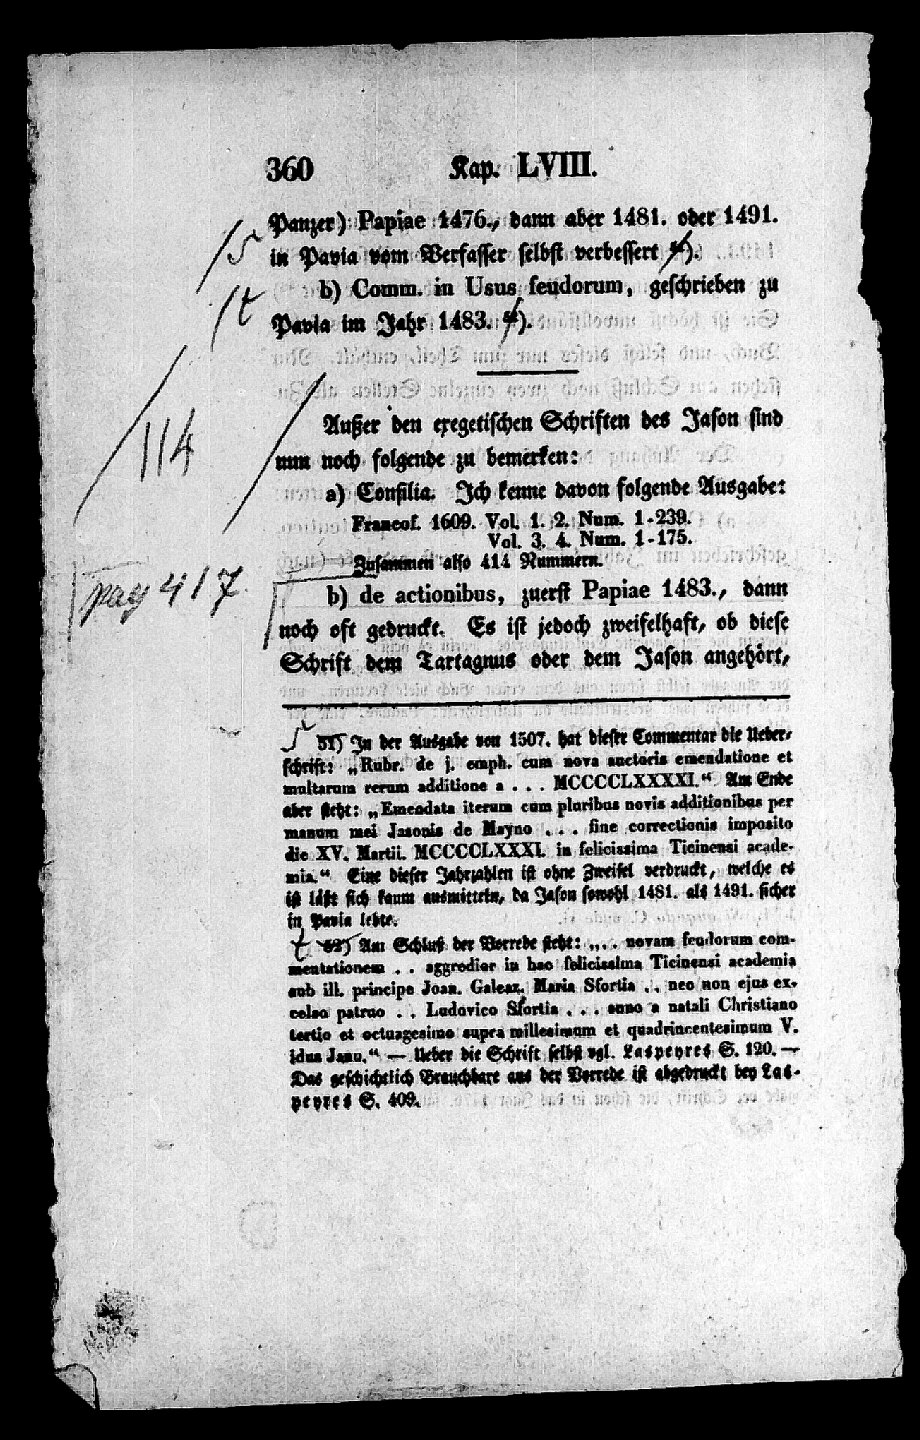 360 Kap. LVIII.
Panzer) Papiae 1476., dann aber 1481. oder 1491.
in Pavia vom Verfasser selbst verbessert 51).
b) Comm. in Usus feudorum, geschrieben zu
Pavia im Jahr 1483. 52).
Außer den exegetischen Schriften des Jason sind
nun noch folgende zu bemerken:
a) Consilia. Ich kenne davon folgende Ausgabe:
Francof. 1609. Vol. 1. 2. Num. 1-239.
Vol. 3. 4. Num. 1-175.
Zusammen also 414 Nummern.
b) de actionibus, zuerst Papiae 1483., dann
noch oft gedruckt. Es ist jedoch zweifelhaft, ob diese
Schrift dem Tartagnus oder dem Jason angehört,
51) In der Ausgabe von 1507. hat dieser Commentar die Ueber-
schrift: „Rubr. de j. emph. cum nova auctoris emendatione et
multarum rerum additione a . . . MCCCCLXXXXI.“ Am Ende
aber steht: „Emendata iterum cum pluribus novis additionibus per
manum mei Jasonis de Mayno . . . fine correctionis imposito
die XV. Martii. MCCCCLXXXI. in felicissima Ticinensi acade-
mia.“ Eine dieser Jahrzahlen ist ohne Zweifel verdruckt, welche es
ist läßt sich kaum ausmitteln, da Jason sowohl 1481. als 1491. sicher
in Pavia lebte.
t 52) Am Schluß der Vorrede steht: „. . novam feudorum com-
mentationem . . aggredior in hac felicissima Ticinensi academia
sub ill. principe Joan. Galeaz. Maria Sfortia . . nec non ejus ex-
celso patruo . . Ludovico Sfortia . . . anno a natali Christiano
tertio et octuagesimo supra millesimum et quadrincentesimum V.
idus Janu.“ — Ueber die Schrift selbst vgl. Laspeyres S. 120. —
Das geschichtlich Brauchbare aus der Vorrede ist abgedruckt bey Las-
peyres S. 409.
t
114
pag 417